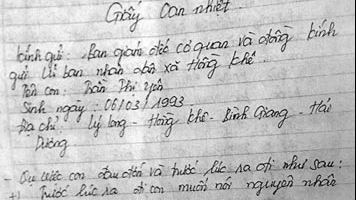 Giấy Oan nhiệt.
kính gửi: Ban giám đốc cơ quan và đồng kính
gửi Uỷ ban nhân dân xã Hồng khê.
Tên con: Trần Thị Yên
Sinh ngày: 06/03/1993
Địa chỉ: Lý long - Hồng khê - Bình Giang - Hải
Dương
- Sự việc con đau đớn và trước lúc ra đi như sau:
+) Trước lúc ra đi con muốn nói nguyên nhân